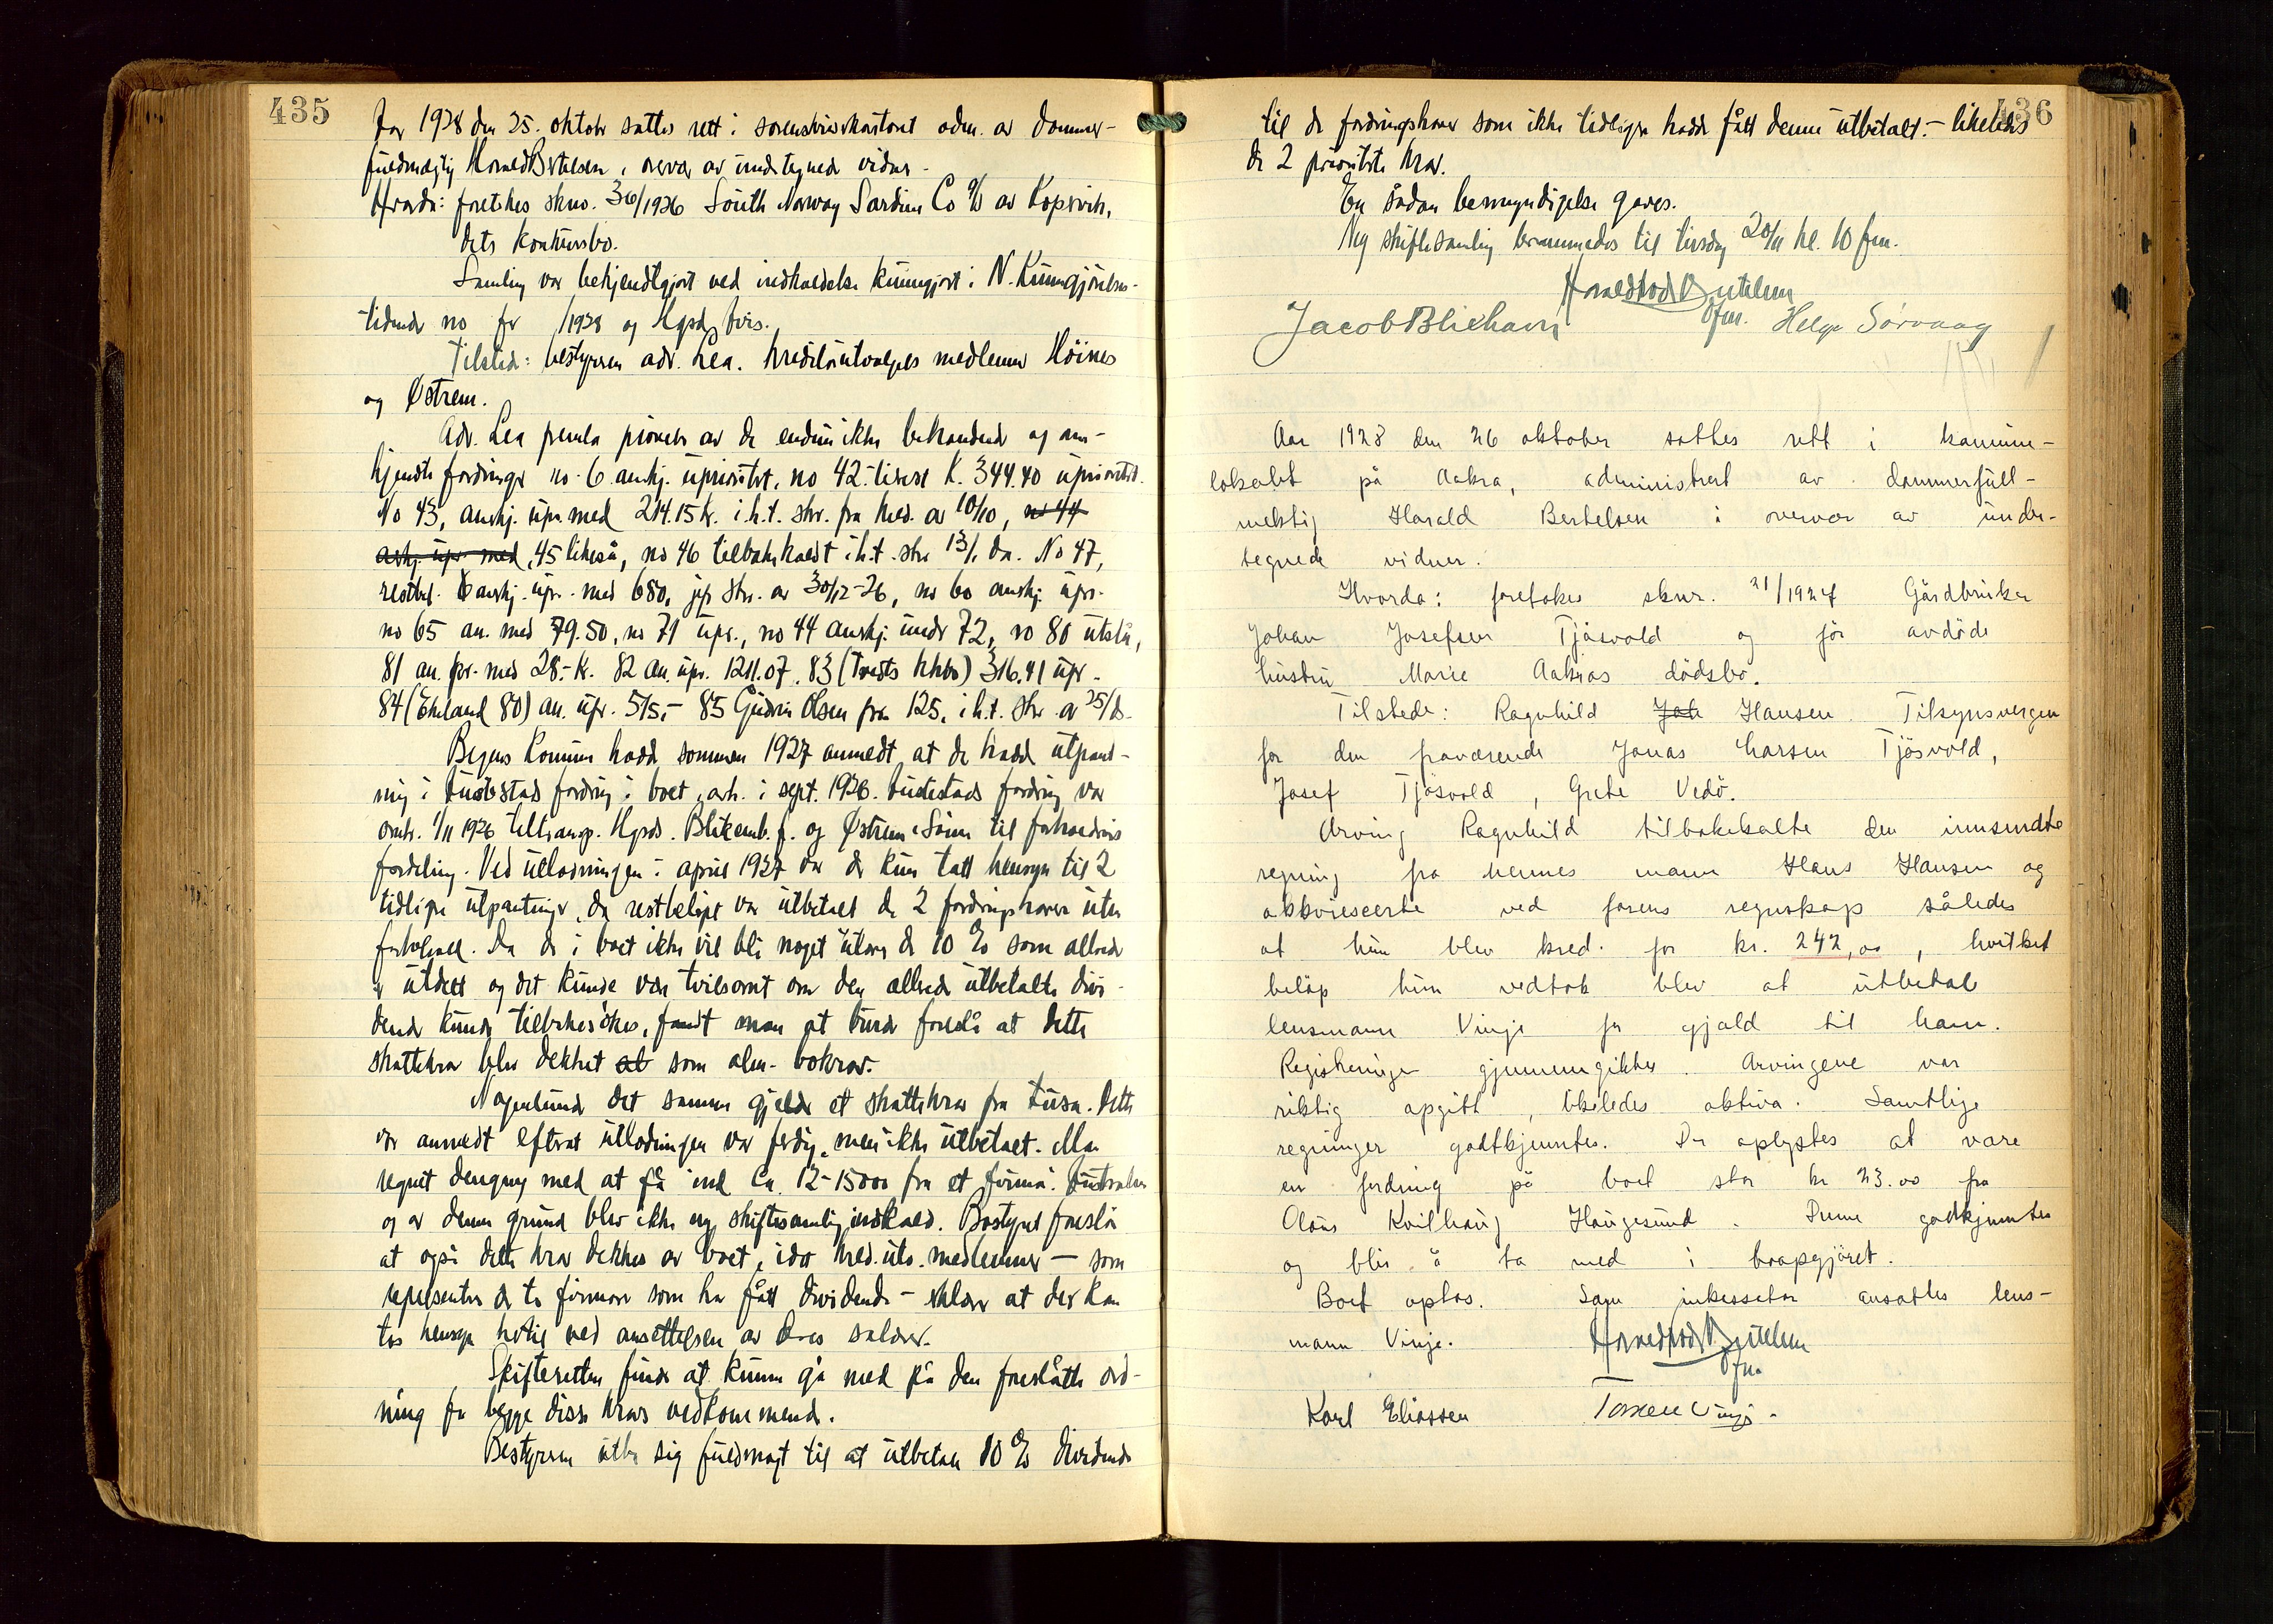 435
Aar 1928 den 25. oktober sattes rett i sorenskriverkontoret adm. av dommer-
fuldmægtig Harald Bertelsen i overvær av undertegnede vidner.
Hvorda: foretokes skno. 36/1926 South Norway Sardine Co A/S av Kopervik,
dets konkursbo.
Samling var bekjendtgjort ved indkaldelse kunngjort i N. Kunngjörelses-
tidende no for /1928 og Hgsds Avis.
Tilstede: bestyreren adv. Lea. Kreditorutvalgets medlemmer Höines
og Østrem.
Adv. Lea fremla prøvelse av de endnu ikke behandlede og an-
kjendte fordringer no. 6 anerkj. uprioritert, no 42 - K. 344.40 uprioritert.
No 43, anerkj. upr. med 214.15 k. i.h.t. skr. fra kred. av 10/10, no 44
anerkj. upr. med, 45 likeså, no 46 tilbakekaldt i.h.t. skr 13/1 da. No 47,
restbel. anerkj. upr. med 680, jfr skr. av 30/12-26, no 60 anerkj. upr.
no 65 an. med 79.50, no 71 upr., no 44 anerkj. under 72, no 80 utslå,
81 an. pr. med 28.- K. 82 an. upr. 1211.07. 83 (Tveits kkbo) 316.41 upr.
84 (Ekeland 80) an. upr. 515,- 85 Gudrun Olsen fra 125, i.h.t. skr av 25/10.
Bergens Kommune hadde sommeren 1927 anmeldt at de hadde utpant-
ning i fordring i boet, avh. i sept. 1926. fordring var
omtr. 1/11 1926 til transp. Hgsds. Blikemb.f. og Østrem & Sönn til forholdsvis
fordeling. Ved utlodningen i april 1927 var der kun tatt hensyn til 2
tidligere utpantinger, da restbelöpet var utbetalt de 2 fordringshavere uten
forbehold. Da der i boet ikke vil bli noget utover de 10 % som allerede
er utdelt og det kunde være tvilsomt om den allerede utbetalte divi-
dende kunde tilbakesökes, fandt man at burde foreslå at dette
skattekrav blev dekket at som alm. bokrav.
Nogenlunde det samme gjelder et skattekrav fra Fusa. Dette
var anmeldt efterat utlodningen var ferdig, men ikke utbetalt. Man
regnet dengang med at få ind Ca. 12-15000 fra et firma i Australien
og av denne grund blev ikke ny skiftesamling indkaldt. Bostyret foreslår
at også dette krav dekkes av boet, idet kred.utv. medlemmer — som
representerer de to firmaer som har fått dividende - erklærer at der kan
tas hensyn hertil ved ansettelsen av deres salærer.
Skifteretten finder at kunne gå med på den foreslåtte ord-
ning for begge disse kravs vedkommende.
Bestyreren utber sig fuldmagt til at utbetale 10 % dividende
436
til de fordringshavere som ikke tidligere hadde fått denne utbetalt. - likeledes
de 2 prioriterte krav.
En sådan bemyndigelse gaves.
Ny skiftesamling berammedes til tirsdag 20/11 kl. 10 fm.
Harald Bertelsen
fm.
Jacob Blikhavn
Helge Sörvaag
Aar 1928 den 26 oktober sattes rett i kommune-
lokalet på Aakra, administrert av dommerfull-
mektig Harald Bertelsen i overvær av under-
tegnede vidner.
Hvorda: foretokes sknr. 21/1927 Gårdbruker
Johan Josefsen Tjösvold og för avdöde
hustru Marie Aakras dödsbo.
Tilstede: Ragnhild Joh Hansen. Tilsynsvergen
for den fraværende Jonas Larsen Tjösvold,
Josef Tjösvold, Grete Vedö.
Arving Ragnhild tilbakekalte den innsendte
regning fra hennes mann Hans Hansen og
akkviescerte ved farens regnskap således
at hun blev kred. for kr. 242,00, hvilket
belöp hun vedtok blev at utbetale
lensmann Vinje for gjæld til ham.
Registeringen gjennemgikkes. Arvingene var
riktig opgitt, likeledes aktiva. Samtlige
regninger godtkjentes. Der oplystes at være
en fordring på boet stor kr 23.00 fra
Olaus Kvilhaug Haugesund. Denne godkjentes
og blir å ta med i boopgjöret.
Boet optas. Som inkassator ansattes lens-
mann Vinje.
Harald Bertelsen
fm
Karl Eliassen
Torstein Vinje.